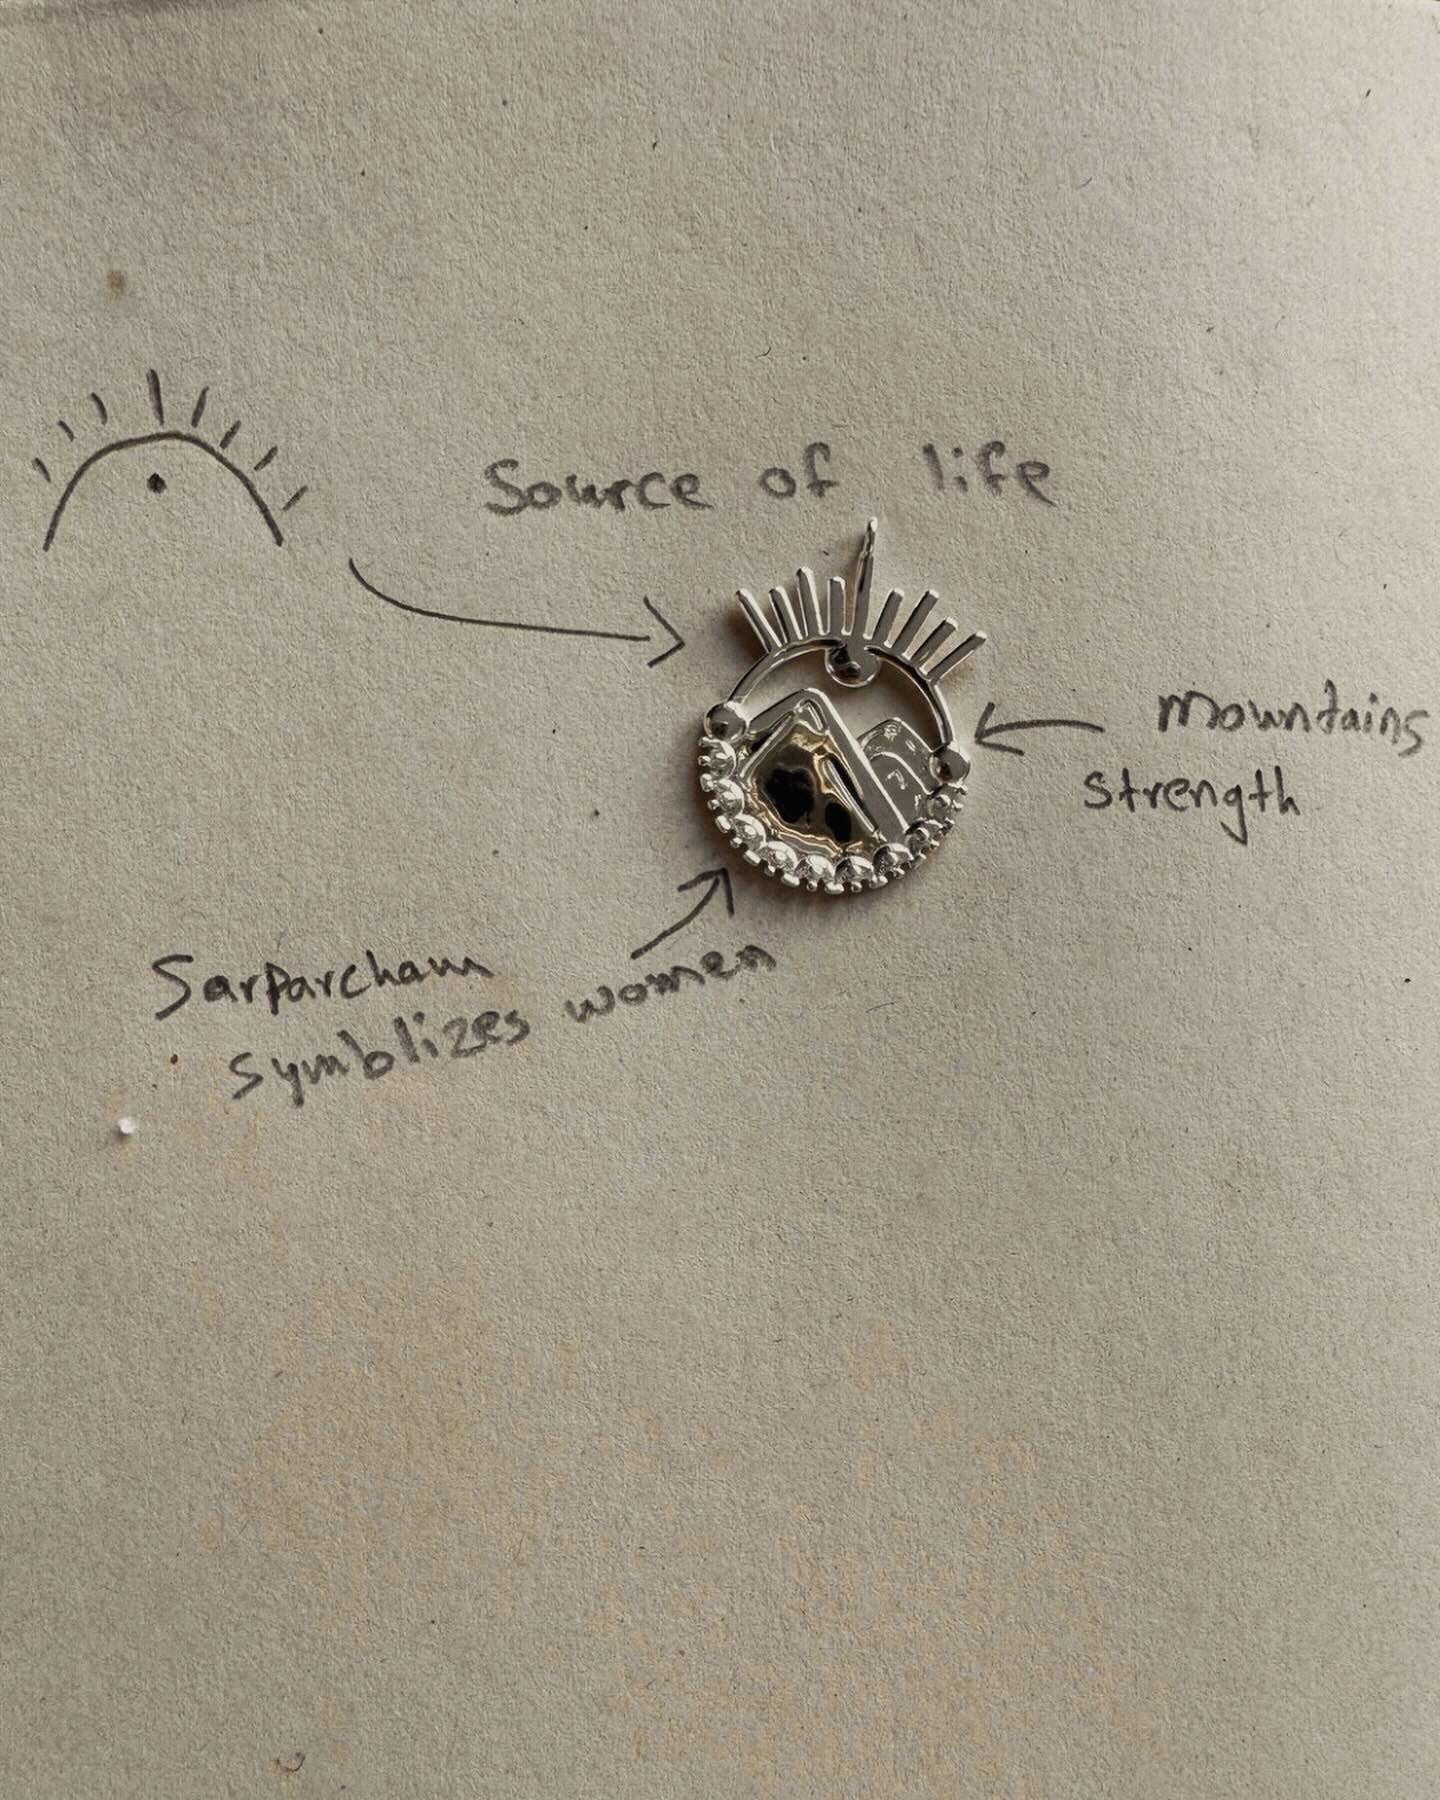 Source of life
Mountains
strength
Sarparcham
symblizes women